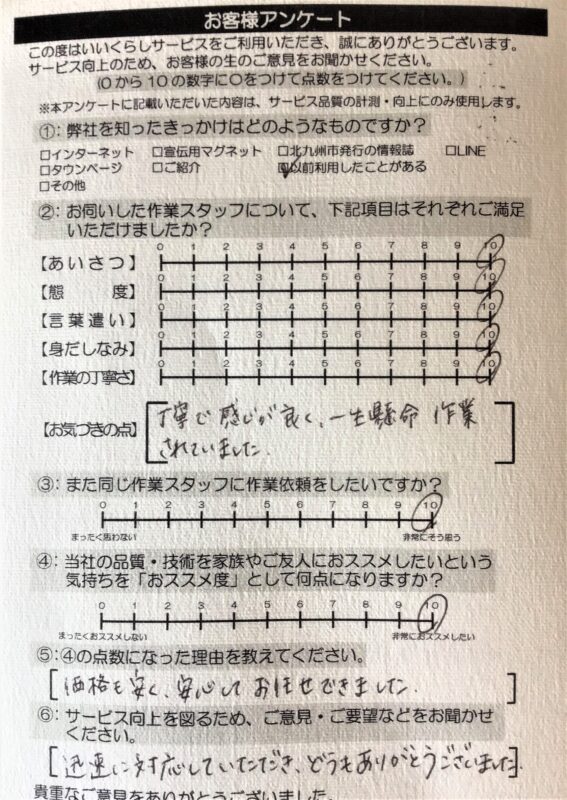 お客様アンケート
この度はいいくらしサービスをご利用いただき、誠にありがとうございます。
サービス向上のため、お客様の生のご意見をお聞かせください。
(0から10の数字に○をつけて点数をつけてください。)
※本アンケートに記載いただいた内容は、サービス品質の計測・向上にのみ使用します。
①:弊社を知ったきっかけはどのようなものですか?
□インターネット □宣伝用マグネット □北九州市発行の情報誌 □LINE
□タウンページ □ご紹介 ☑以前利用したことがある
□その他
②:お伺いした作業スタッフについて、下記項目はそれぞれご満足
いただけましたか?
0 1 2 3 4 5 6 7 8 9 10
【あいさつ】
0 1 2 3 4 5 6 7 8 9 10
【態度】
0 1 2 3 4 5 6 7 8 9 10
【言葉遣い】
0 1 2 3 4 5 6 7 8 9 10
【身だしなみ】
0 1 2 3 4 5 6 7 8 9 10
【作業の丁寧さ】
【お気づきの点】
丁寧で感じが良く、一生懸命 作業
されていました。
③:また同じ作業スタッフに作業依頼をしたいですか?
0 1 2 3 4 5 6 7 8 9 10
まったく思わない 非常にそう思う
④:当社の品質・技術を家族やご友人におススメしたいという
気持ちを「おススメ度」として何点になりますか?
0 1 2 3 4 5 6 7 8 9 10
まったくおススメしない 非常におススメしたい
⑤:④の点数になった理由を教えてください。
価格も安く、安心して お任せできました。
⑥:サービス向上を図るため、ご意見・ご要望などをお聞かせ
ください。
迅速に対応していただき、どうもありがとうございました。
貴重なご意見をありがとうございました。